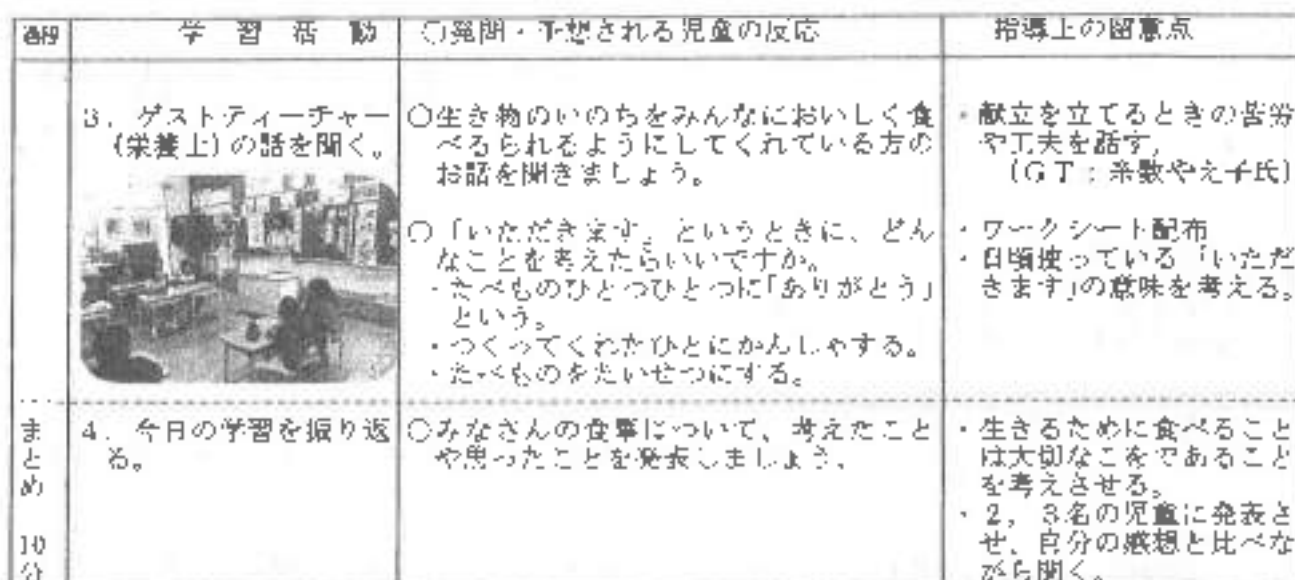 段階
学習活動
○発問・予想される児童の反応
指導上の留意点
3．ゲストティーチャー
(栄養士)の話を聞く。
○生き物のいのちをみんなにおいしく食
べるられるようにしてくれている方の
お話を聞きましょう。
・献立を立てるときの苦労
や工夫を話す。
(GT：糸数やえ子氏)
○「いただきます」というときに、どん
なことを考えたらいいですか。
・たべものひとつひとつに｢ありがとう｣
という。
・つくってくれたひとにかんしゃする。
・たべものをたいせつにする。
・ワークシート配布
・日頃使っている「いただ
きます｣の意味を考える。
まとめ
10分
4．今日の学習を振り返
る。
○みなさんの食事について、考えたこと
や思ったことを発表しましょう。
・生きるために食べること
は大切なことであること
を考えさせる。
・2，3名の児童に発表さ
せ、自分の感想と比べな
がら聞く。